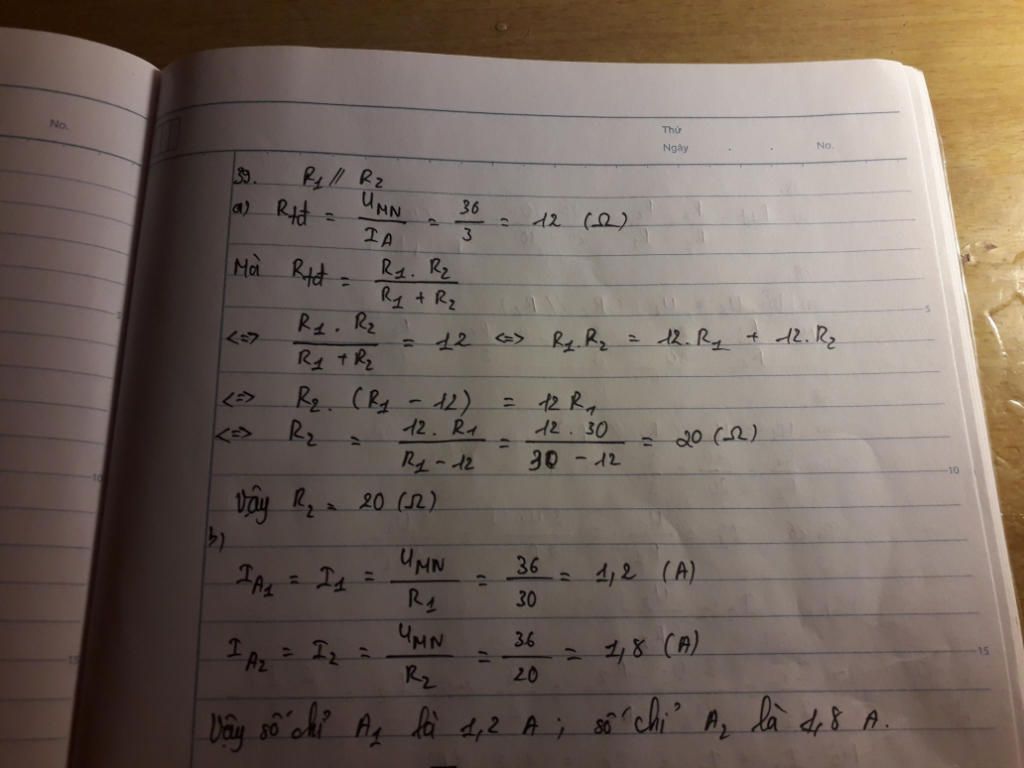 No.
Thứ
Ngày . . No.
39. R₁ // R₂
a) Rtđ = U_MN / I_A = 36 / 3 = 12 (Ω)
Mà Rtđ = R₁ . R₂ / R₁ + R₂
<=> R₁ . R₂ / R₁ + R₂ = 12 <=> R₁.R₂ = 12.R₁ + 12.R₂
5
<=> R₂ . (R₁ - 12) = 12 R₁
<=> R₂ = 12 . R₁ / R₁ - 12 = 12 . 30 / 30 - 12 = 20 (Ω)
10
Vậy R₂ = 20 (Ω)
b)
I_A₁ = I₁ = U_MN / R₁ = 36 / 30 = 1,2 (A)
I_A₂ = I₂ = U_MN / R₂ = 36 / 20 = 1,8 (A)
15
Vậy số chỉ A₁ là 1,2 A ; số chỉ A₂ là 1,8 A.